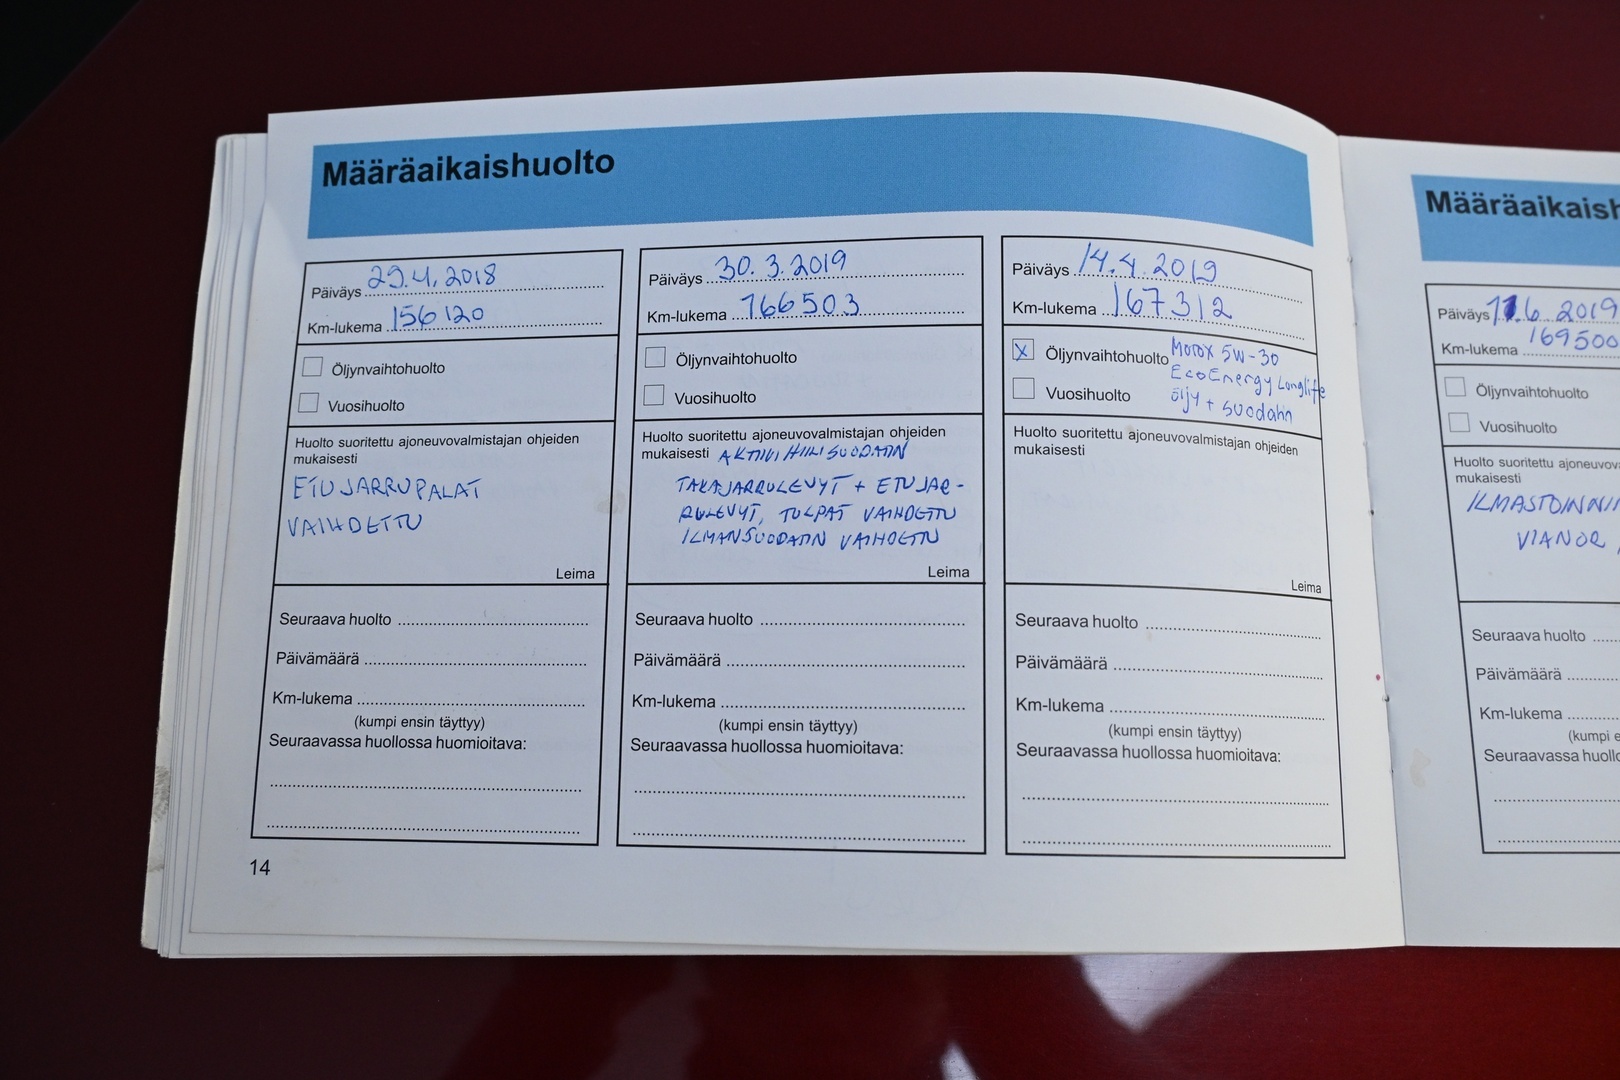 Määräaikaishuolto
Päiväys 29.4.2018
Km-lukema 156120
Öljynvaihtohuolto
Vuosihuolto
Huolto suoritettu ajoneuvovalmistajan ohjeiden
mukaisesti
ETUJARRUPALAT
VAIHDETTU
Leima
Seuraava huolto
Päivämäärä
Km-lukema
(kumpi ensin täyttyy)
Seuraavassa huollossa huomioitava:
14
Päiväys 30.3.2019
Km-lukema 166503
Öljynvaihtohuolto
Vuosihuolto
Huolto suoritettu ajoneuvovalmistajan ohjeiden
mukaisesti AKTIIVIHIILISUODATIN
TAKAJARRULEVYT + ETUJAR-
RULEVYT, TULPAT VAIHDETTU
ILMANSUODATIN VAIHDETTU
Leima
Seuraava huolto
Päivämäärä
Km-lukema
(kumpi ensin täyttyy)
Seuraavassa huollossa huomioitava:
Päiväys 14.4.2019
Km-lukema 167312
X Öljynvaihtohuolto Motox 5W-30
EcoEnergy Longlife
Vuosihuolto öljy + suodatin
Huolto suoritettu ajoneuvovalmistajan ohjeiden
mukaisesti
Leima
Seuraava huolto
Päivämäärä
Km-lukema
(kumpi ensin täyttyy)
Seuraavassa huollossa huomioitava:
Määräaikaish
Päiväys 11.6.2019
Km-lukema 169500
Öljynvaihtohuolto
Vuosihuolto
Huolto suoritettu ajoneuvova
mukaisesti
ILMASTOINNIN
VIANOR
Seuraava huolto
Päivämäärä
Km-lukema
(kumpi e
Seuraavassa huollo